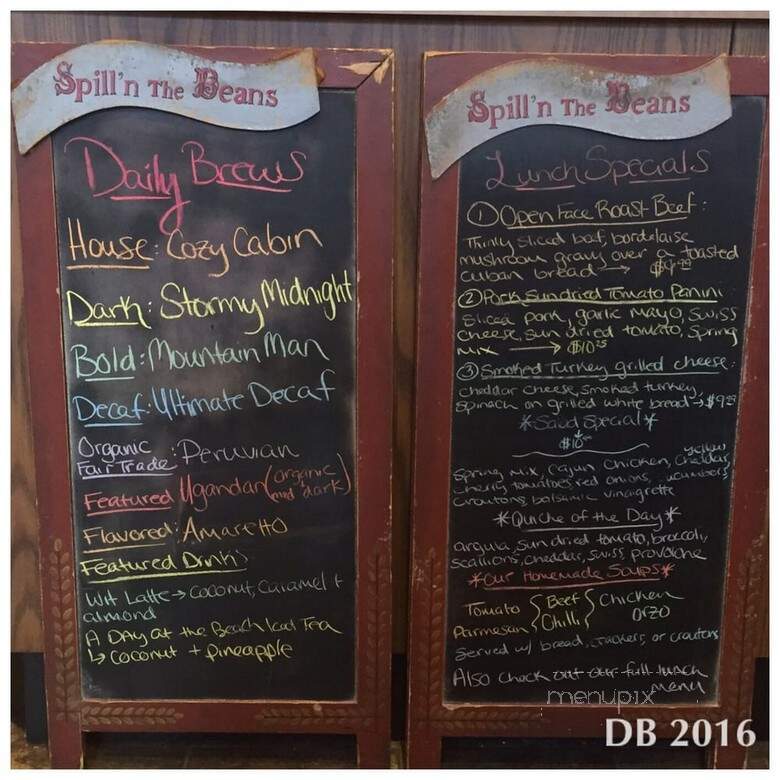 Spill'n The Beans
Daily Brews
House: Cozy Cabin
Dark: Stormy Midnight
Bold: Mountain Man
Decaf: Ultimate Decaf
Organic
Fair Trade: Peruvian
Featured Ugandan (organic
med dark)
Flavored: Amaretto
Featured Drinks
Wit Latte → Coconut, Caramel +
almond
A Day at the Beach Iced Tea
↳ Coconut + Pineapple
Spill'n The Beans
Lunch Specials
① Open Face Roast Beef:
Thinly sliced beef, bordelaise
mushroom gravy over a toasted
cuban bread →
② Pork, Sundried Tomato Panini
Sliced pork, garlic mayo, swiss
cheese, sun dried tomato, spring
mix → $10.25
③ Smoked Turkey grilled cheese:
cheddar cheese, smoked turkey,
spinach on grilled white bread →
*Salad Special*
Spring mix, cajun chicken, yellow cheddar,
cherry tomatoes, red onions, cucumbers,
croutons, balsamic vinaigrette
*Quiche of the Day*
argula, sun dried tomato, broccoli,
scallions, cheddar, swiss, provolone
*Our Homemade Soups*
Tomato { Beef { Chicken
Parmesan { Chilli { Orzo
Served w/ bread, crackers, or croutons
Also check out our full lunch
menu
menupix
DB 2016